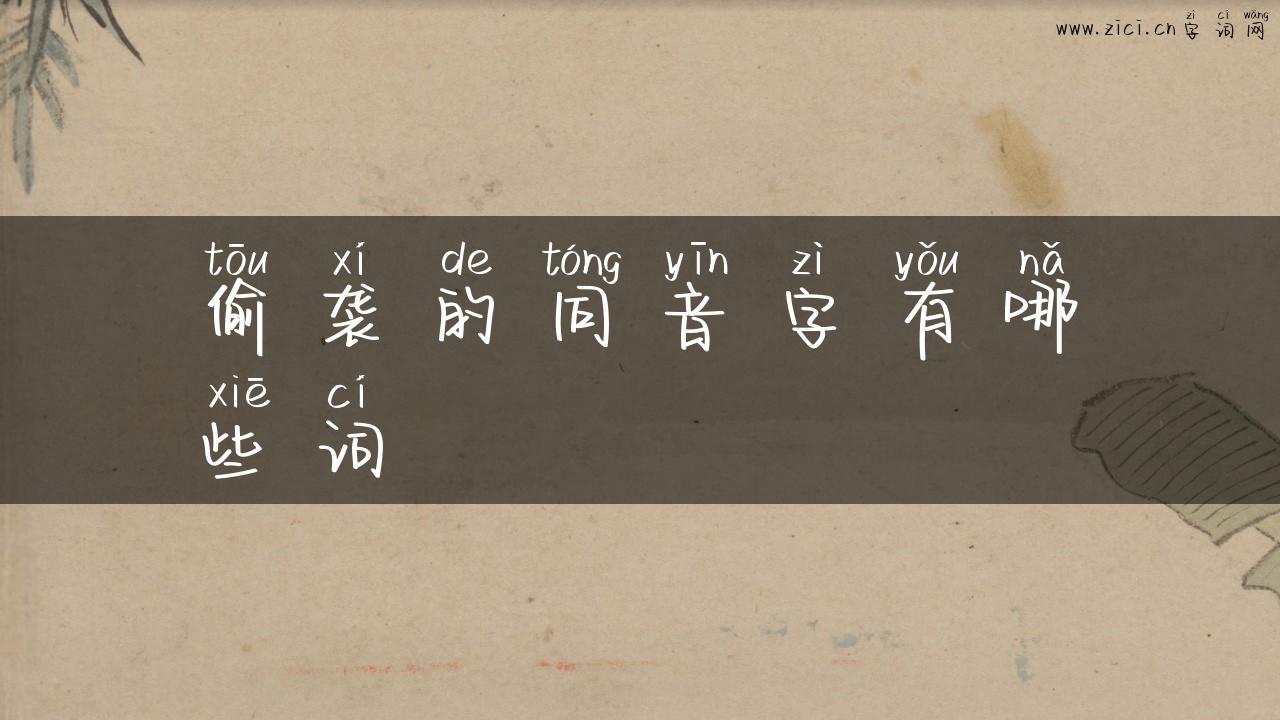 zì cí wǎng
www.zici.cn 字词网
tōu xí de tóng yīn zì yǒu nǎ
偷袭的同音字有哪
xiē cí
些词